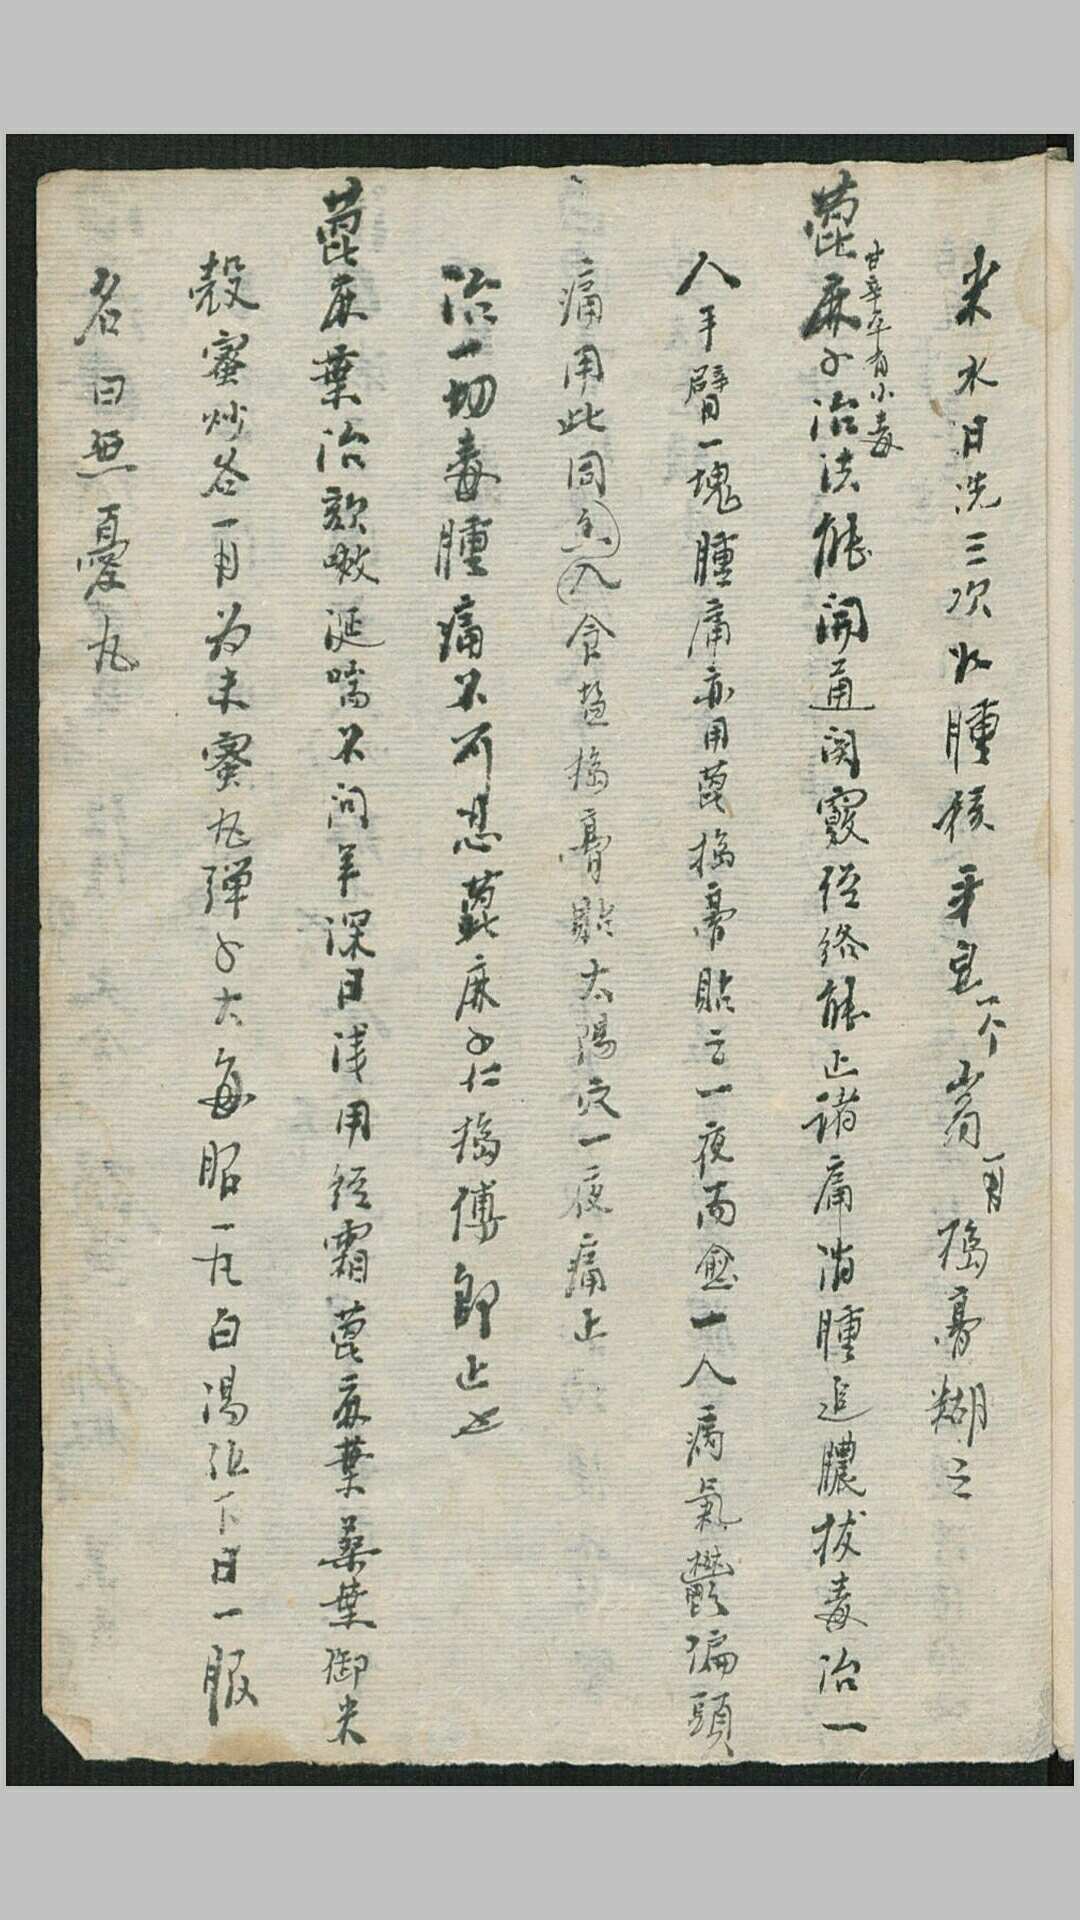 米水日洗三次水腫核平皂一个嵩一月搗膏糊之
蓖麻子治法能開通関竅経絡能止諸痛消腫追膿抜毒治一
甘辛平有小毒
人手臂一塊腫痛亦用蓖搗膏貼之一夜而愈一人病氣鬱偏頭
痛用此同入食鹽搗膏貼太陽穴一夜痛止
治一切毒腫痛不可忍蓖麻子仁搗傅即止也
蓖麻葉治欬嗽涎喘不問年深日浅用経霜蓖麻葉桑葉御米
殻蜜炒各一月为末蜜丸弾子大每服一丸白湯化下日一服
名曰無憂丸